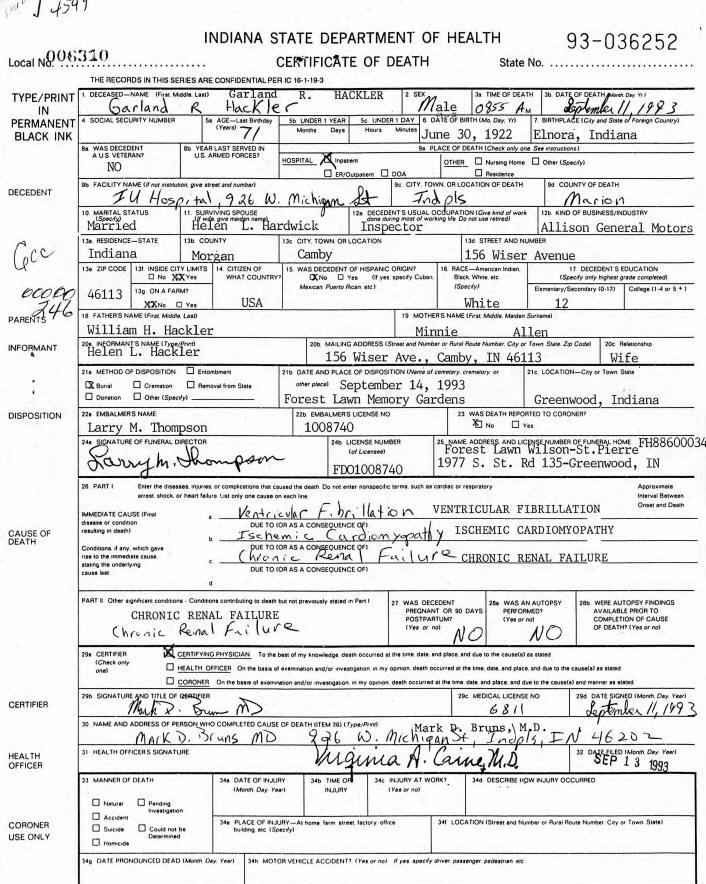 4599
INDIANA STATE DEPARTMENT OF HEALTH
93-036252
Local No. 006310
CERTIFICATE OF DEATH
State No.
THE RECORDS IN THIS SERIES ARE CONFIDENTIAL PER IC 16-1-19-3
TYPE/PRINT IN PERMANENT BLACK INK
1. DECEASED—NAME (First, Middle, Last) Garland R. HACKLER
Garland R Hackler
2. SEX Male
3a. TIME OF DEATH 0855 AM
3b. DATE OF DEATH (Month, Day, Year) September 11, 1993
4. SOCIAL SECURITY NUMBER
5a. AGE—Last Birthday (Years) 71
5b. UNDER 1 YEAR Months Days
5c. UNDER 1 DAY Hours Minutes
6. DATE OF BIRTH (Mo, Day, Yr) June 30, 1922
7. BIRTHPLACE (City and State of Foreign Country) Elnora, Indiana
DECEDENT
8a. WAS DECEDENT A U.S. VETERAN? NO
8b. YEAR LAST SERVED IN U.S. ARMED FORCES?
9a. PLACE OF DEATH (Check only one. See instructions)
HOSPITAL X Inpatient ER/Outpatient DOA
OTHER Nursing Home Other (Specify) Residence
9b. FACILITY NAME (If not institution, give street and number) IU Hospital, 926 W. Michigan St
9c. CITY, TOWN, OR LOCATION OF DEATH Indpls
9d. COUNTY OF DEATH Marion
10. MARITAL STATUS (Specify) Married
11. SURVIVING SPOUSE (If wife, give maiden name) Helen L. Hardwick
12a. DECEDENT'S USUAL OCCUPATION (Give kind of work done during most of working life. Do not use retired) Inspector
12b. KIND OF BUSINESS/INDUSTRY Allison General Motors
13a. RESIDENCE—STATE Indiana
13b. COUNTY Morgan
13c. CITY, TOWN, OR LOCATION Camby
13d. STREET AND NUMBER 156 Wiser Avenue
13e. ZIP CODE 46113
13f. INSIDE CITY LIMITS No XX Yes
13g. ON A FARM? XX No Yes
14. CITIZEN OF WHAT COUNTRY? USA
15. WAS DECEDENT OF HISPANIC ORIGIN? X No Yes (If yes, specify Cuban, Mexican, Puerto Rican, etc.)
16. RACE—American Indian, Black, White, etc. (Specify) White
17. DECEDENT'S EDUCATION (Specify only highest grade completed)
Elementary/Secondary (0-12) 12
College (1-4 or 5+)
246
PARENTS
18. FATHER'S NAME (First, Middle, Last) William H. Hackler
19. MOTHER'S NAME (First, Middle, Maiden Surname) Minnie Allen
INFORMANT
20a. INFORMANT'S NAME (Type/Print) Helen L. Hackler
20b. MAILING ADDRESS (Street and Number or Rural Route Number, City or Town, State, Zip Code) 156 Wiser Ave., Camby, IN 46113
20c. Relationship Wife
DISPOSITION
21a. METHOD OF DISPOSITION Entombment
X Burial Cremation Removal from State
Donation Other (Specify)
21b. DATE AND PLACE OF DISPOSITION (Name of cemetery, crematory, or other place) September 14, 1993
Forest Lawn Memory Gardens
21c. LOCATION—City or Town, State Greenwood, Indiana
22a. EMBALMER'S NAME Larry M. Thompson
22b. EMBALMER'S LICENSE NO. 1008740
23. WAS DEATH REPORTED TO CORONER? X No Yes
24a. SIGNATURE OF FUNERAL DIRECTOR Larry M. Thompson
24b. LICENSE NUMBER (of Licensee) FD01008740
25. NAME, ADDRESS, AND LICENSE NUMBER OF FUNERAL HOME FH88600034
Forest Lawn Wilson-St.Pierre
1977 S. St. Rd 135-Greenwood, IN
CAUSE OF DEATH
26. PART I. Enter the diseases, injuries, or complications that caused the death. Do not enter nonspecific terms, such as cardiac or respiratory arrest, shock, or heart failure. List only one cause on each line.
Approximate Interval Between Onset and Death
IMMEDIATE CAUSE (Final disease or condition resulting in death)
a. Ventricular Fibrillation VENTRICULAR FIBRILLATION
DUE TO (OR AS A CONSEQUENCE OF)
b. Ischemic Cardiomyopathy ISCHEMIC CARDIOMYOPATHY
DUE TO (OR AS A CONSEQUENCE OF)
Conditions, if any, which gave rise to the immediate cause, stating the underlying cause last
c. Chronic Renal Failure CHRONIC RENAL FAILURE
DUE TO (OR AS A CONSEQUENCE OF)
d.
PART II. Other significant conditions - Conditions contributing to death but not previously stated in Part I
CHRONIC RENAL FAILURE
Chronic Renal Failure
27. WAS DECEDENT PREGNANT OR 90 DAYS POSTPARTUM? (Yes or no) NO
28a. WAS AN AUTOPSY PERFORMED? (Yes or no) NO
28b. WERE AUTOPSY FINDINGS AVAILABLE PRIOR TO COMPLETION OF CAUSE OF DEATH? (Yes or no)
CERTIFIER
29a. CERTIFIER (Check only one)
X CERTIFYING PHYSICIAN To the best of my knowledge, death occurred at the time, date, and place, and due to the cause(s) as stated
HEALTH OFFICER On the basis of examination and/or investigation, in my opinion, death occurred at the time, date, and place, and due to the cause(s) as stated
CORONER On the basis of examination and/or investigation, in my opinion, death occurred at the time, date, and place, and due to the cause(s) and manner as stated
29b. SIGNATURE AND TITLE OF CERTIFIER Mark D. Bruns MD
29c. MEDICAL LICENSE NO 6811
29d. DATE SIGNED (Month, Day, Year) September 11, 1993
30. NAME AND ADDRESS OF PERSON WHO COMPLETED CAUSE OF DEATH (ITEM 26) (Type/Print) Mark D. Bruns, M.D.
MARK D. BRUNS MD 926 W. Michigan St, Indpls, IN 46202
HEALTH OFFICER
31. HEALTH OFFICER'S SIGNATURE Virginia A. Caine, M.D.
32. DATE FILED (Month, Day, Year) SEP 13 1993
CORONER USE ONLY
33. MANNER OF DEATH
Natural Pending Investigation
Accident
Suicide Could not be Determined
Homicide
34a. DATE OF INJURY (Month, Day, Year)
34b. TIME OF INJURY
34c. INJURY AT WORK? (Yes or no)
34d. DESCRIBE HOW INJURY OCCURRED
34e. PLACE OF INJURY—At home, farm, street, factory, office building, etc. (Specify)
34f. LOCATION (Street and Number or Rural Route Number, City or Town, State)
34g. DATE PRONOUNCED DEAD (Month, Day, Year)
34h. MOTOR VEHICLE ACCIDENT? (Yes or no) If yes, specify driver, passenger, pedestrian, etc.